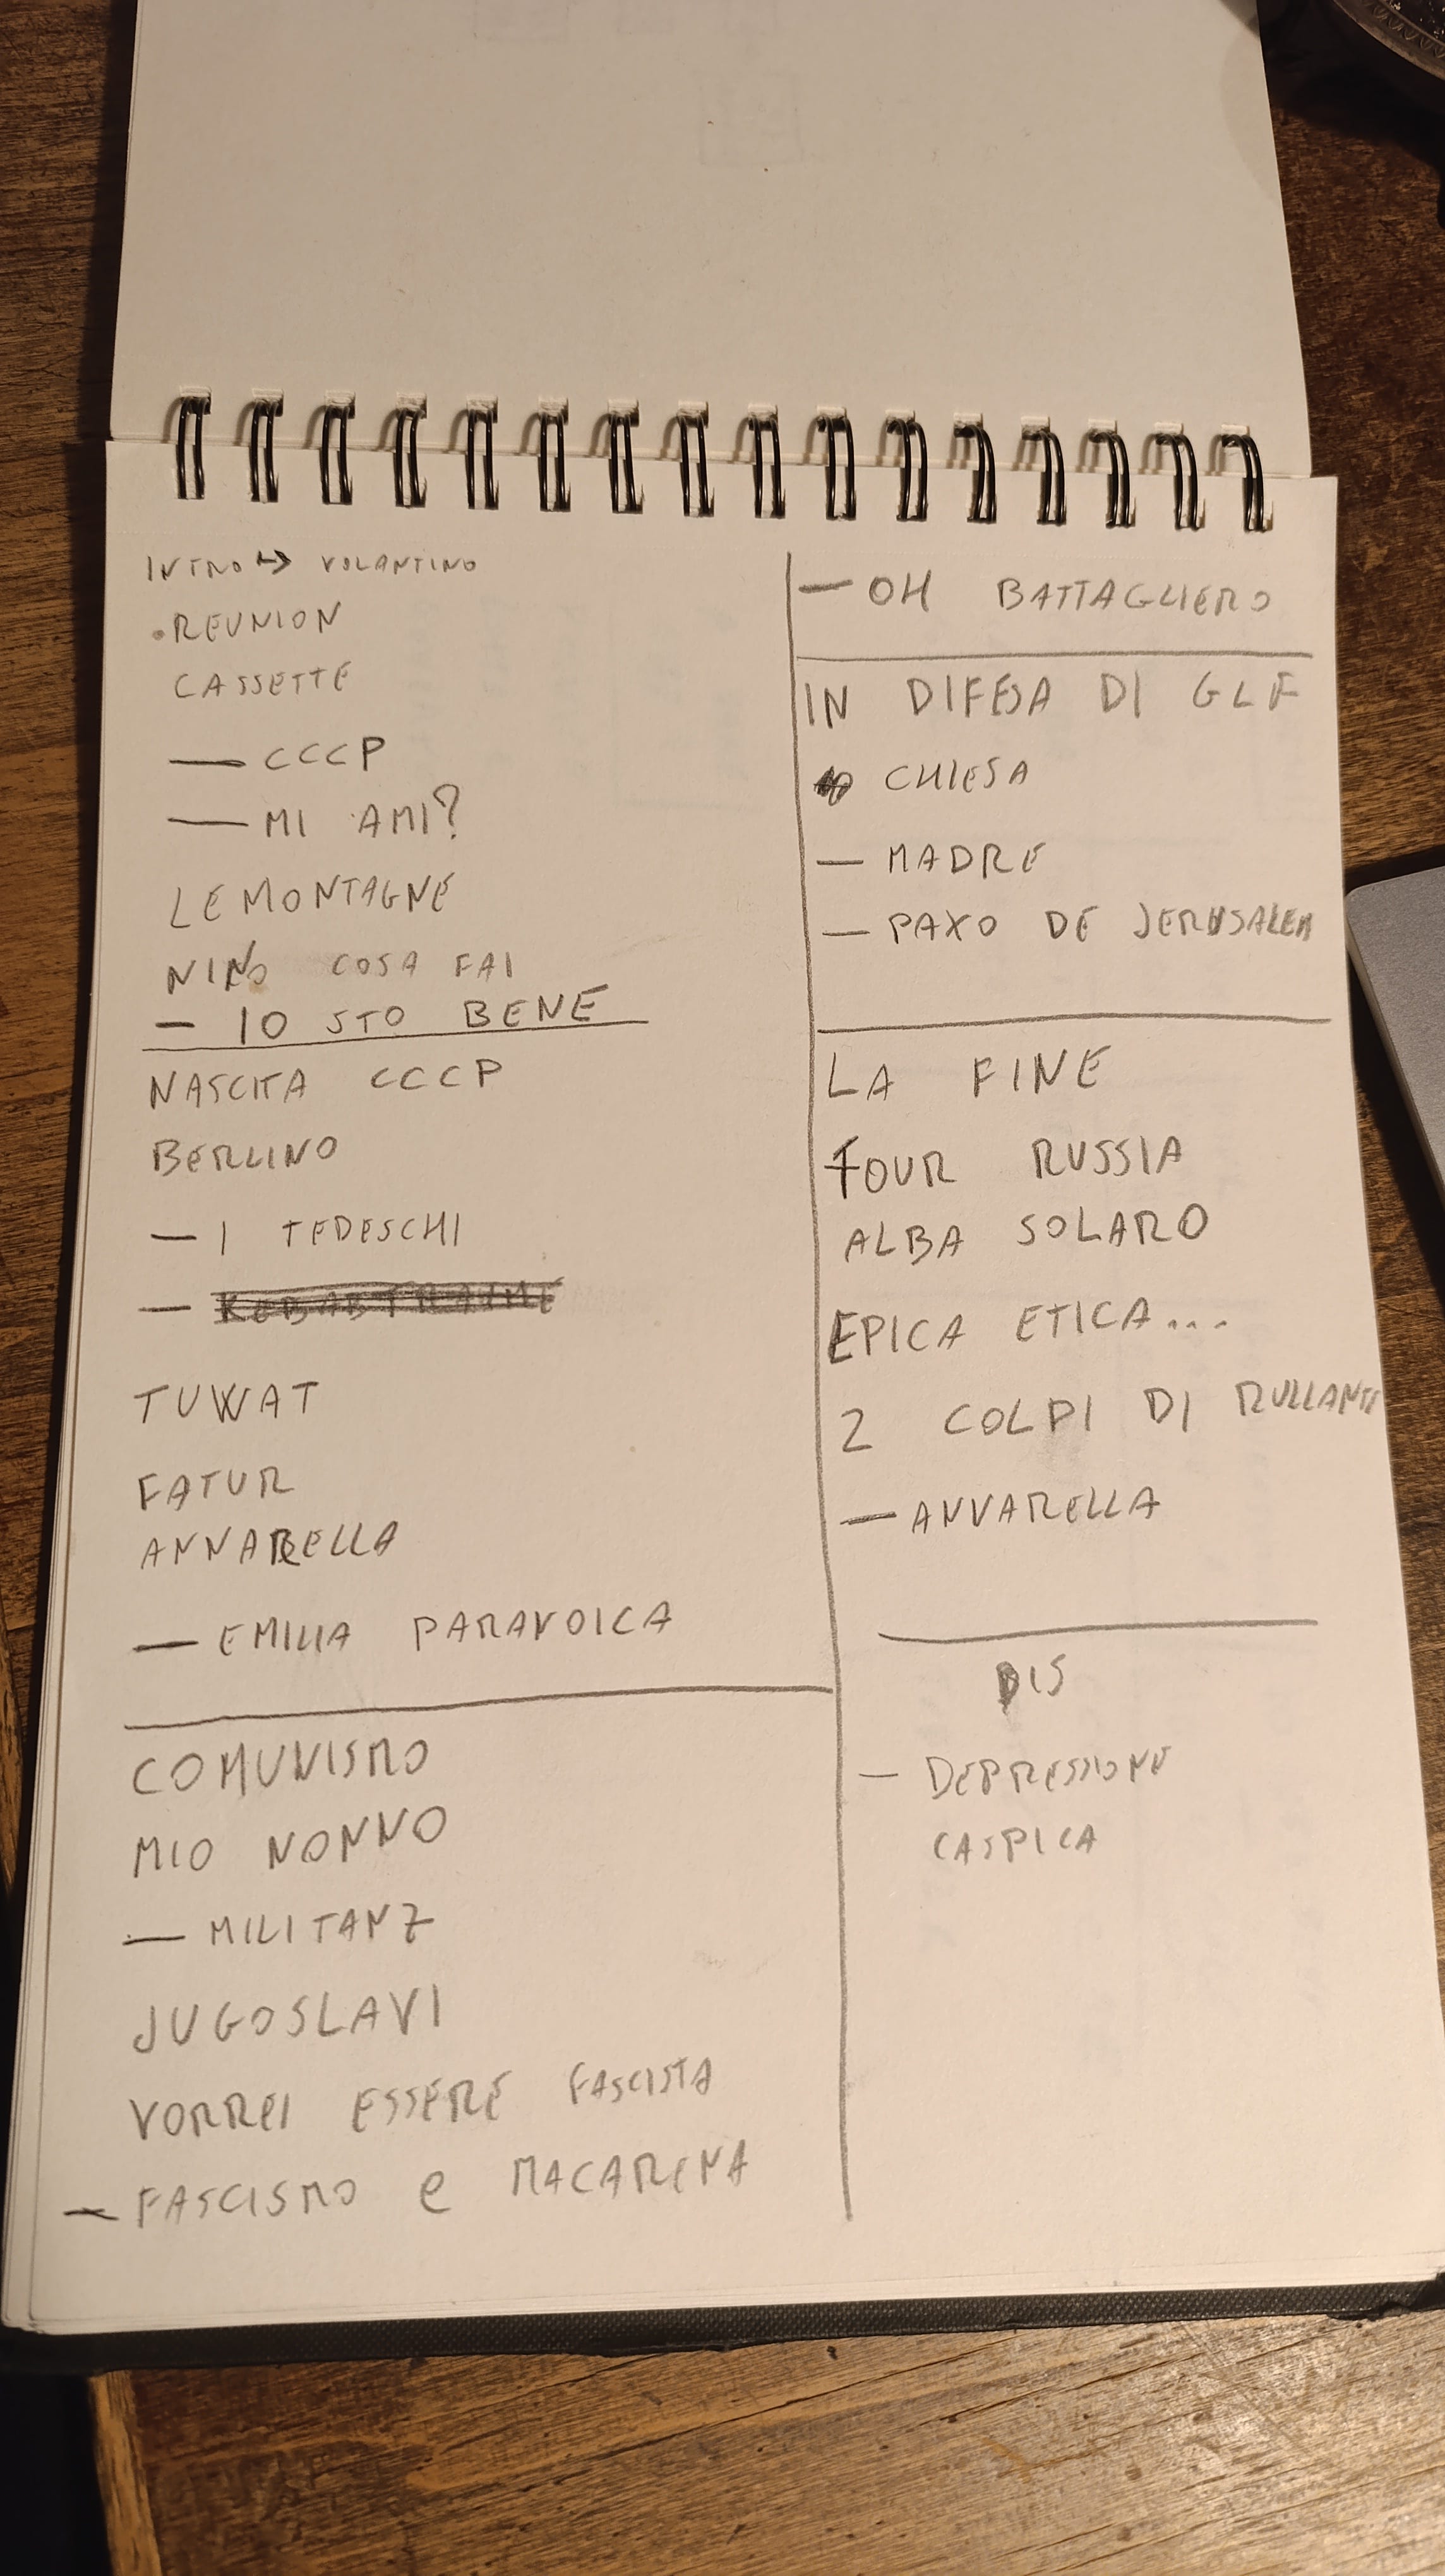 INTRO → VOLANTINO
.REUNION
CASSETTE
— CCCP
— MI AMI?
LE MONTAGNE
NINO COSA FAI
— IO STO BENE
NASCITA CCCP
BERLINO
— I TEDESCHI
— KEBABTRAUME
TUWAT
FATUR
ANNARELLA
— EMILIA PARANOICA
COMUNISMO
MIO NONNO
— MILITANZ
JUGOSLAVI
VORREI ESSERE FASCISTA
— FASCISMO e MACARENA
— OH BATTAGLIERO
IN DIFESA DI GLF
CHIESA
— MADRE
— PAXO DE JERUSALEM
LA FINE
TOUR RUSSIA
ALBA SOLARO
EPICA ETICA...
2 COLPI DI RULLANTE
— ANNARELLA
BIS
— DEPRESSIONE
CASPICA